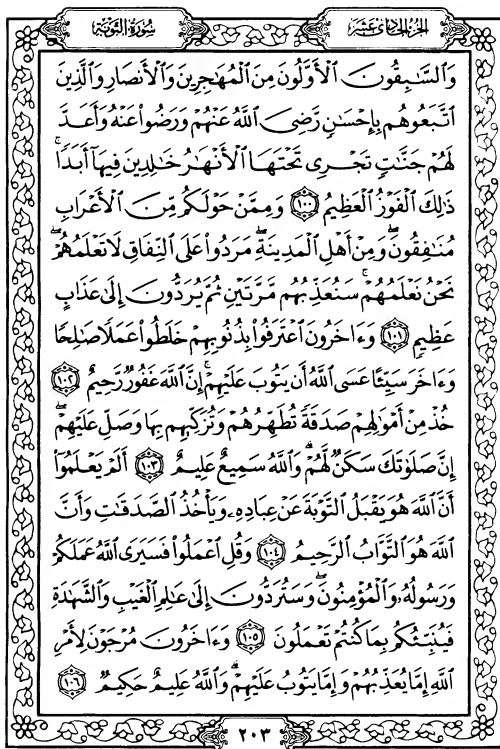 سُورَةُ التَّوْبَةِ
الجزء الحادي عشر
وَالسَّـٰبِقُونَ الْأَوَّلُونَ مِنَ الْمُهَـٰجِرِينَ وَالْأَنصَارِ وَالَّذِينَ
اتَّبَعُوهُم بِإِحْسَـٰنٍ رَّضِىَ اللَّهُ عَنْهُمْ وَرَضُوا۟ عَنْهُ وَأَعَدَّ
لَهُمْ جَنَّـٰتٍ تَجْرِى تَحْتَهَا الْأَنْهَـٰرُ خَـٰلِدِينَ فِيهَآ أَبَدًا ۚ
ذَٰلِكَ الْفَوْزُ الْعَظِيمُ ١٠٠ وَمِمَّنْ حَوْلَكُم مِّنَ الْأَعْرَابِ
مُنَـٰفِقُونَ ۖ وَمِنْ أَهْلِ الْمَدِينَةِ ۖ مَرَدُوا۟ عَلَى النِّفَاقِ لَا تَعْلَمُهُمْ ۖ
نَحْنُ نَعْلَمُهُمْ ۚ سَنُعَذِّبُهُم مَّرَّتَيْنِ ثُمَّ يُرَدُّونَ إِلَىٰ عَذَابٍ
عَظِيمٍ ١٠١ وَءَاخَرُونَ اعْتَرَفُوا۟ بِذُنُوبِهِمْ خَلَطُوا۟ عَمَلًا صَـٰلِحًا
وَءَاخَرَ سَيِّئًا عَسَى اللَّهُ أَن يَتُوبَ عَلَيْهِمْ ۚ إِنَّ اللَّهَ غَفُورٌ رَّحِيمٌ ١٠٢
خُذْ مِنْ أَمْوَٰلِهِمْ صَدَقَةً تُطَهِّرُهُمْ وَتُزَكِّيهِم بِهَا وَصَلِّ عَلَيْهِمْ ۖ
إِنَّ صَلَوٰتَكَ سَكَنٌ لَّهُمْ ۗ وَاللَّهُ سَمِيعٌ عَلِيمٌ ١٠٣ أَلَمْ يَعْلَمُوٓا۟
أَنَّ اللَّهَ هُوَ يَقْبَلُ التَّوْبَةَ عَنْ عِبَادِهِۦ وَيَأْخُذُ الصَّدَقَـٰتِ وَأَنَّ
اللَّهَ هُوَ التَّوَّابُ الرَّحِيمُ ١٠٤ وَقُلِ اعْمَلُوا۟ فَسَيَرَى اللَّهُ عَمَلَكُمْ
وَرَسُولُهُۥ وَالْمُؤْمِنُونَ ۖ وَسَتُرَدُّونَ إِلَىٰ عَـٰلِمِ الْغَيْبِ وَالشَّهَـٰدَةِ
فَيُنَبِّئُكُم بِمَا كُنتُمْ تَعْمَلُونَ ١٠٥ وَءَاخَرُونَ مُرْجَوْنَ لِأَمْرِ
اللَّهِ إِمَّا يُعَذِّبُهُمْ وَإِمَّا يَتُوبُ عَلَيْهِمْ ۗ وَاللَّهُ عَلِيمٌ حَكِيمٌ ١٠٦
٢٠٣